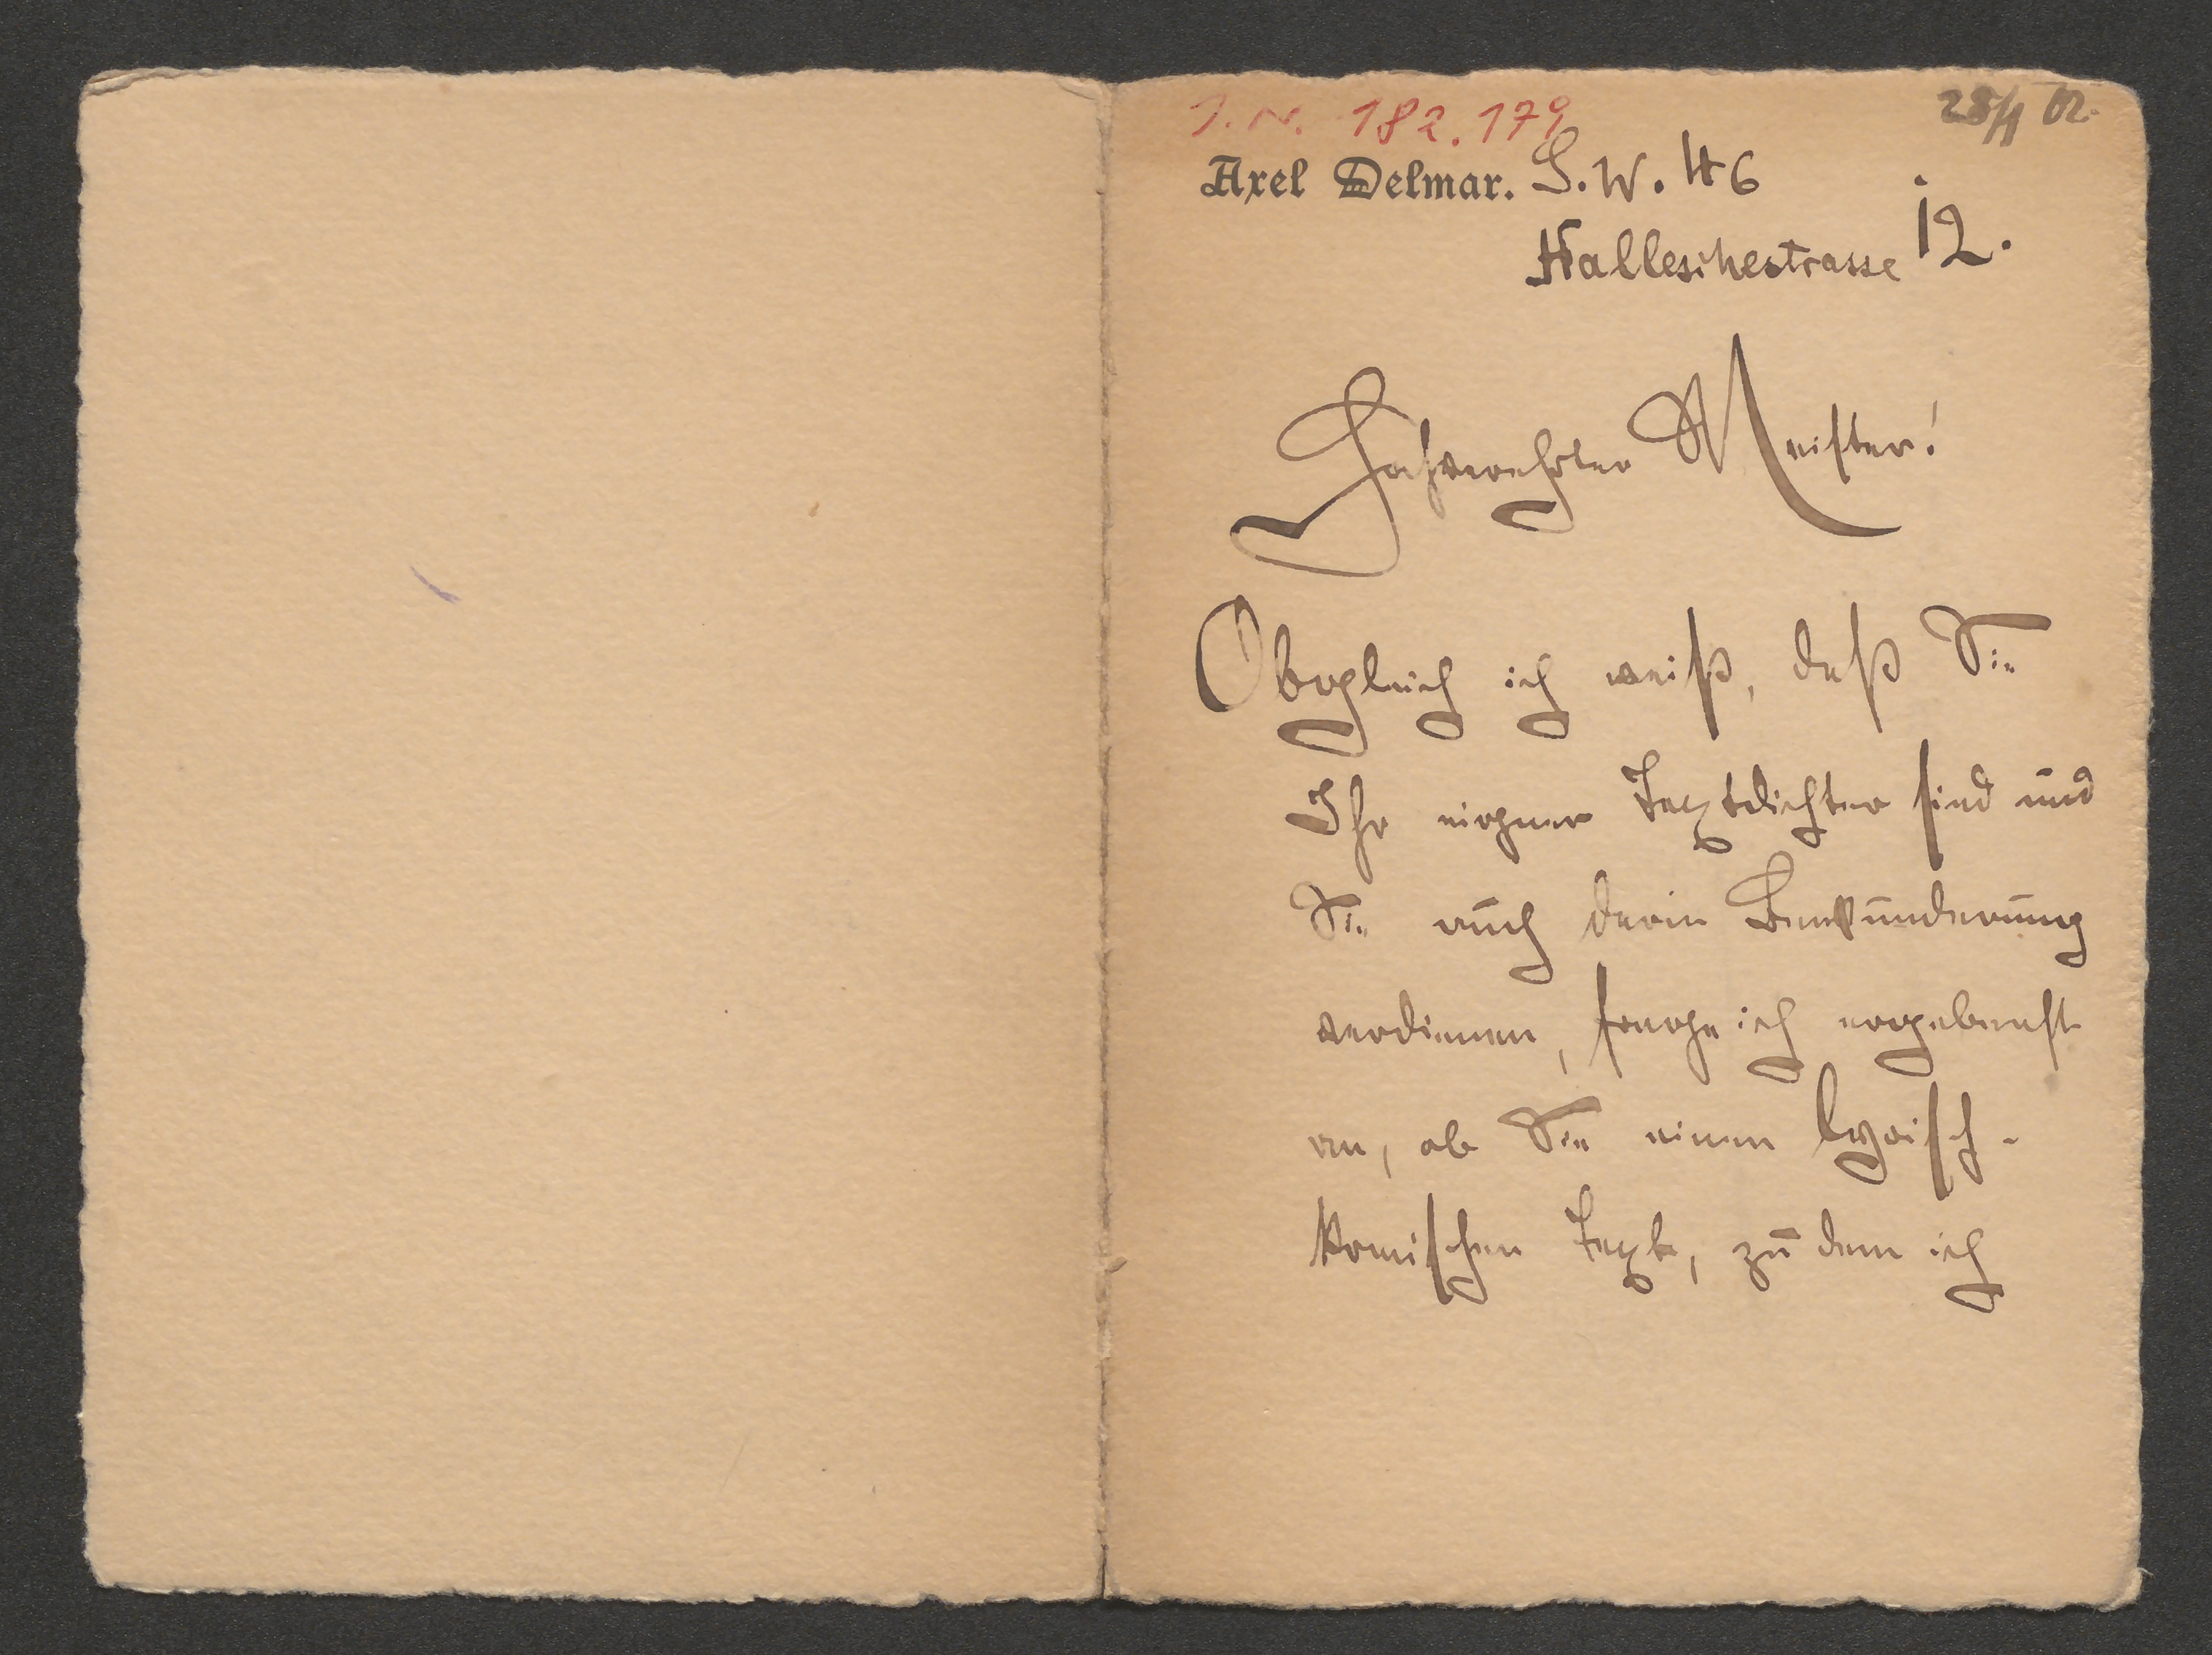 J. N. 182.179
28/11 02.
Axel Delmar. S. W. 46
Halleschestrasse 12.
Hochverehrter Meister!
Obgleich ich weiß, daß Sie
Ihr eigner Textdichter sind und
Sie auch darin Bewunderung
verdienen, frage ich ergebenst
an, ob Sie einen lyrisch-
komischen Text, zu dem ich